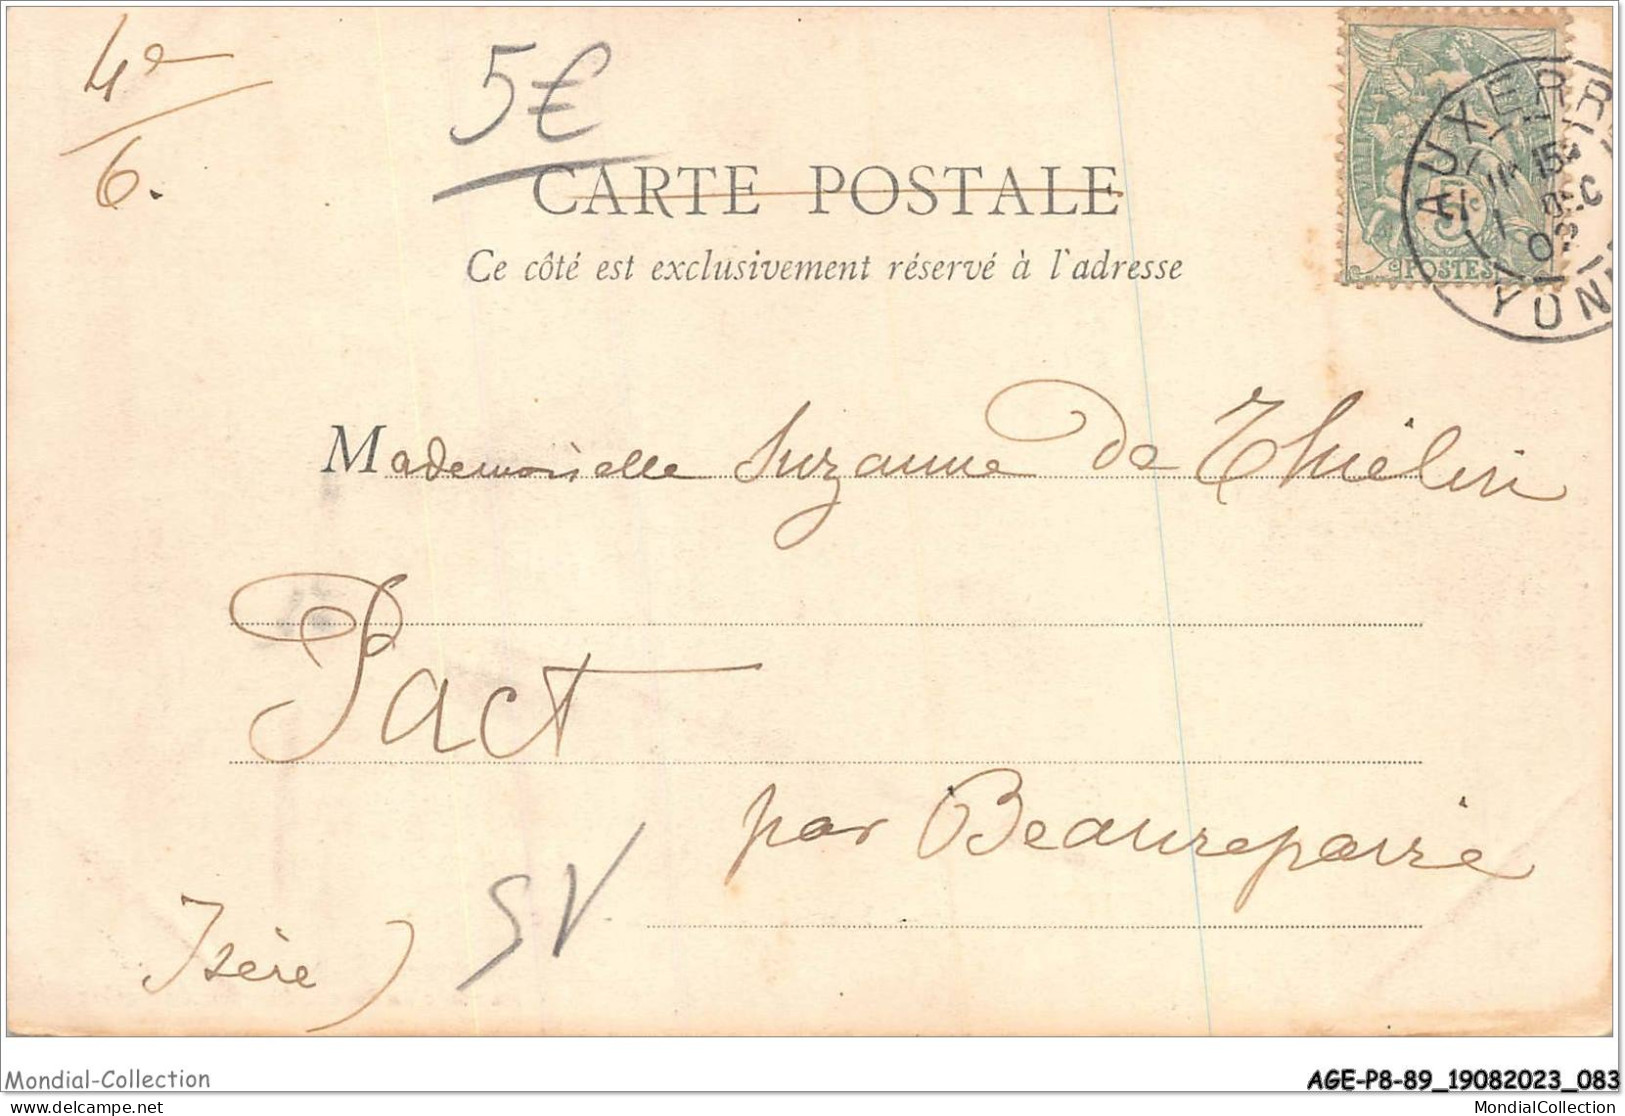 4e
6.
5€
CARTE POSTALE
Ce côté est exclusivement réservé à l'adresse
5c
POSTES
AUXERR
15
DEC
03
YONN
Mademoiselle Suzanne de Thiélin
Pact
par Beaurepaire
Isère)
SV
Mondial-Collection
AGE-P8-89_19082023_083
delcampe.net
MondialCollection